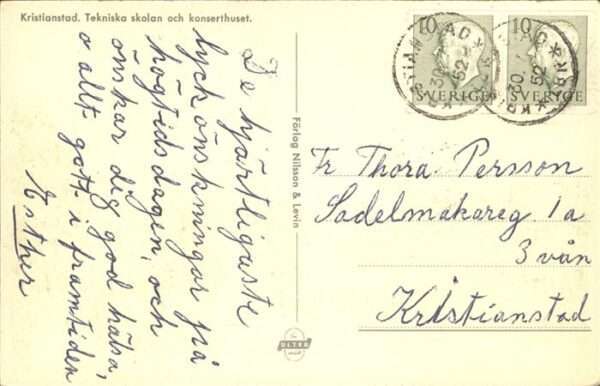 Kristianstad. Tekniska skolan och konserthuset.
De hjärtligaste
lyckönskningar på
högtidsdagen, och
önskar dig god hälsa,
o allt gott i framtiden
Esther
Förlag Nilsson & Levin
ULTRA
10
SVERIGE
10
SVERIGE
30
52
30
52
Fr Thora Persson
Sadelmakareg 1a
3 vån
Kristianstad